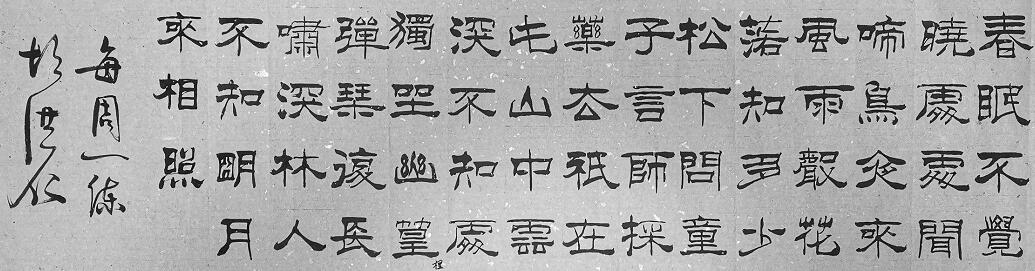 春眠不覺
曉處處聞
啼鳥夜來
風雨聲花
落知多少
松下問童
子言師採
藥去祇在
此山中雲
深不知處
獨坐幽篁裡
彈琴復長
嘯深林人
不知明月
來相照
每周一練